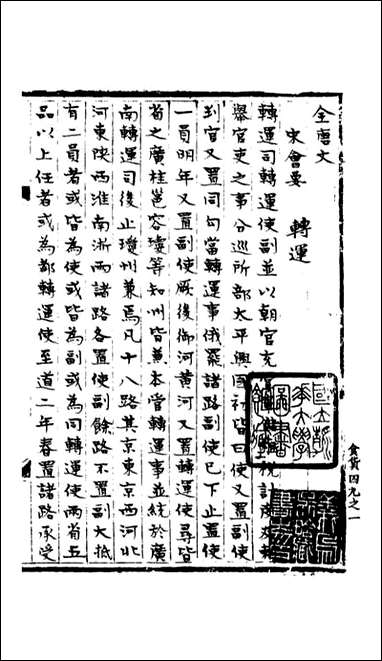 全唐文
宋會要 轉運
轉運司轉運使副並以朝官充 税計度
舉官吏之事分巡所部太平興國初皆曰使又置副使
到官又置同勾當轉運事俄罷諸路副使已下止置使
一員明年又置副使厥後御河黄河又置轉運使尋皆
省之廣桂邕容瓊等知州皆兼本管轉運事並統於廣
南轉運司後止瓊州兼焉凡十八路其京東京西河北
河東陝西淮南浙西諸路各置使副餘路不置副大抵
有二員者或皆為使或皆為副或為同轉運使兩省五
品以上任者或為都轉運使至道二年春置諸路承受
食貨四九之一